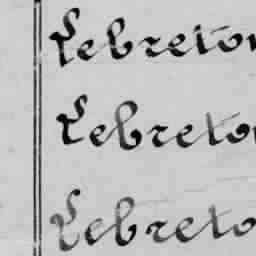 Lebreton
Lebreto
Lebreto